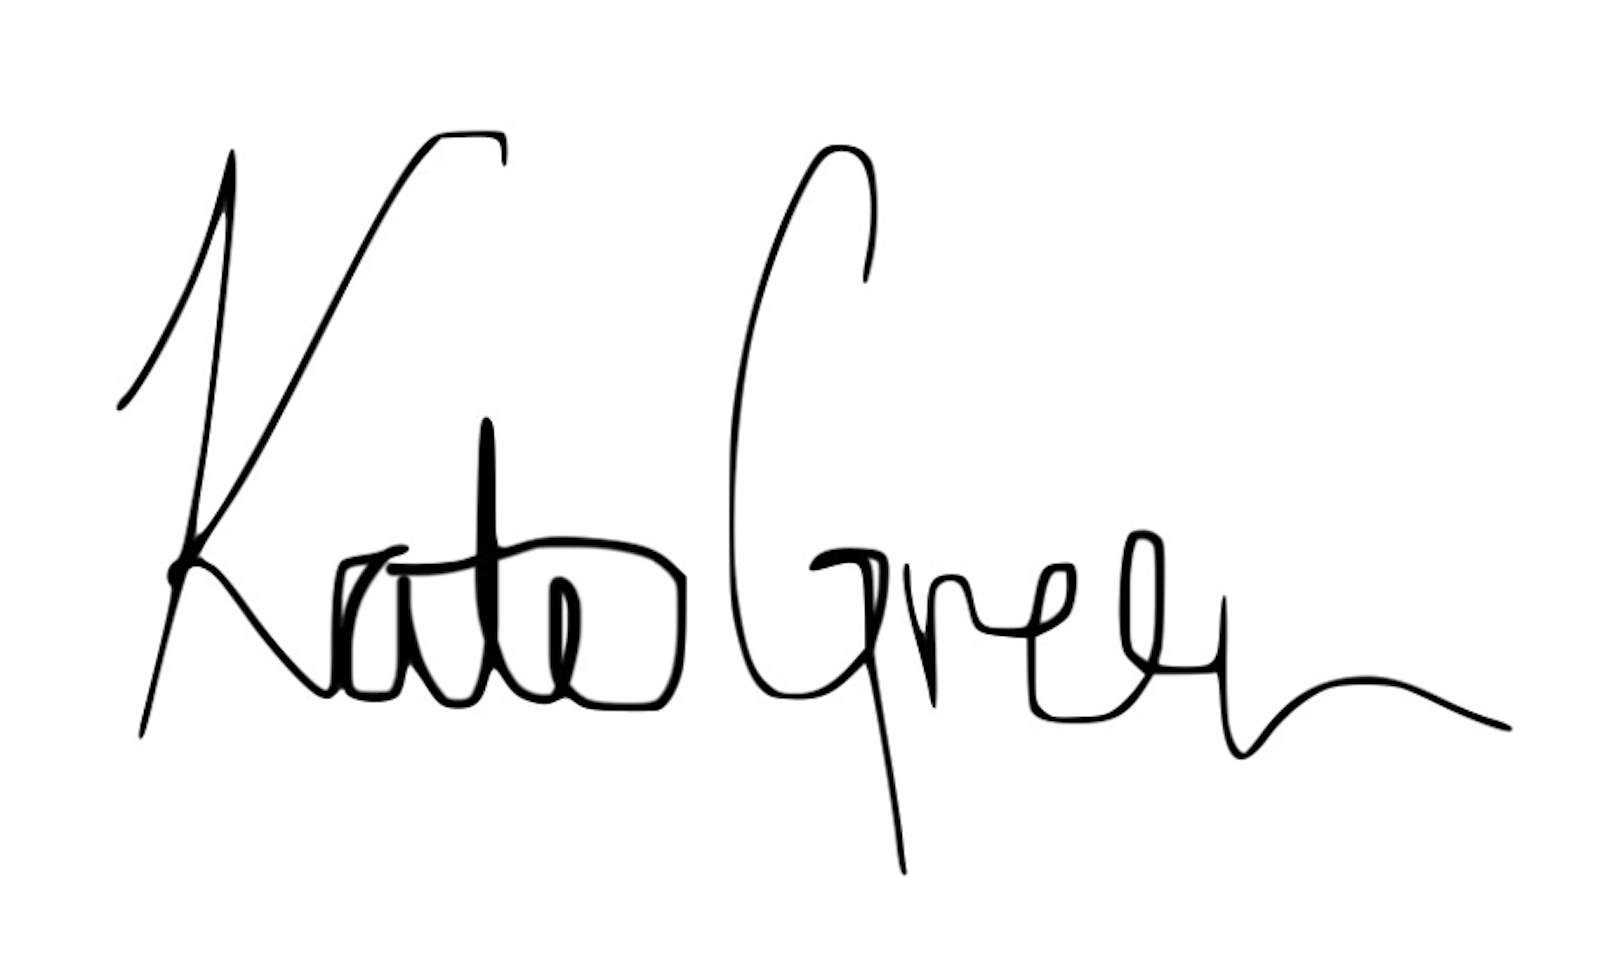 Kate Green